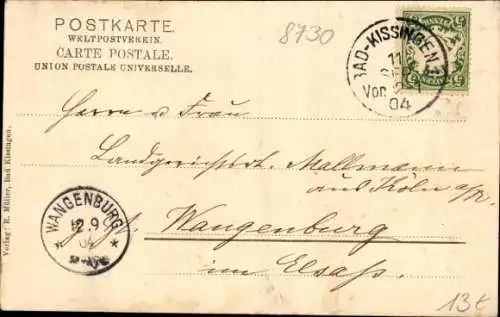 POSTKARTE.
WELTPOSTVEREIN.
CARTE POSTALE.
UNION POSTALE UNIVERSELLE.
8730
BAD-KISSINGEN
11
Vor.
04
Herrn u. Frau
Landgerichtsrt. Mallmann
aus Köln a/R.
Wangenburg
im Elsaß.
WANGENBURG
12.9
04
Verlag: R. Müller, Bad Kissingen.
13€